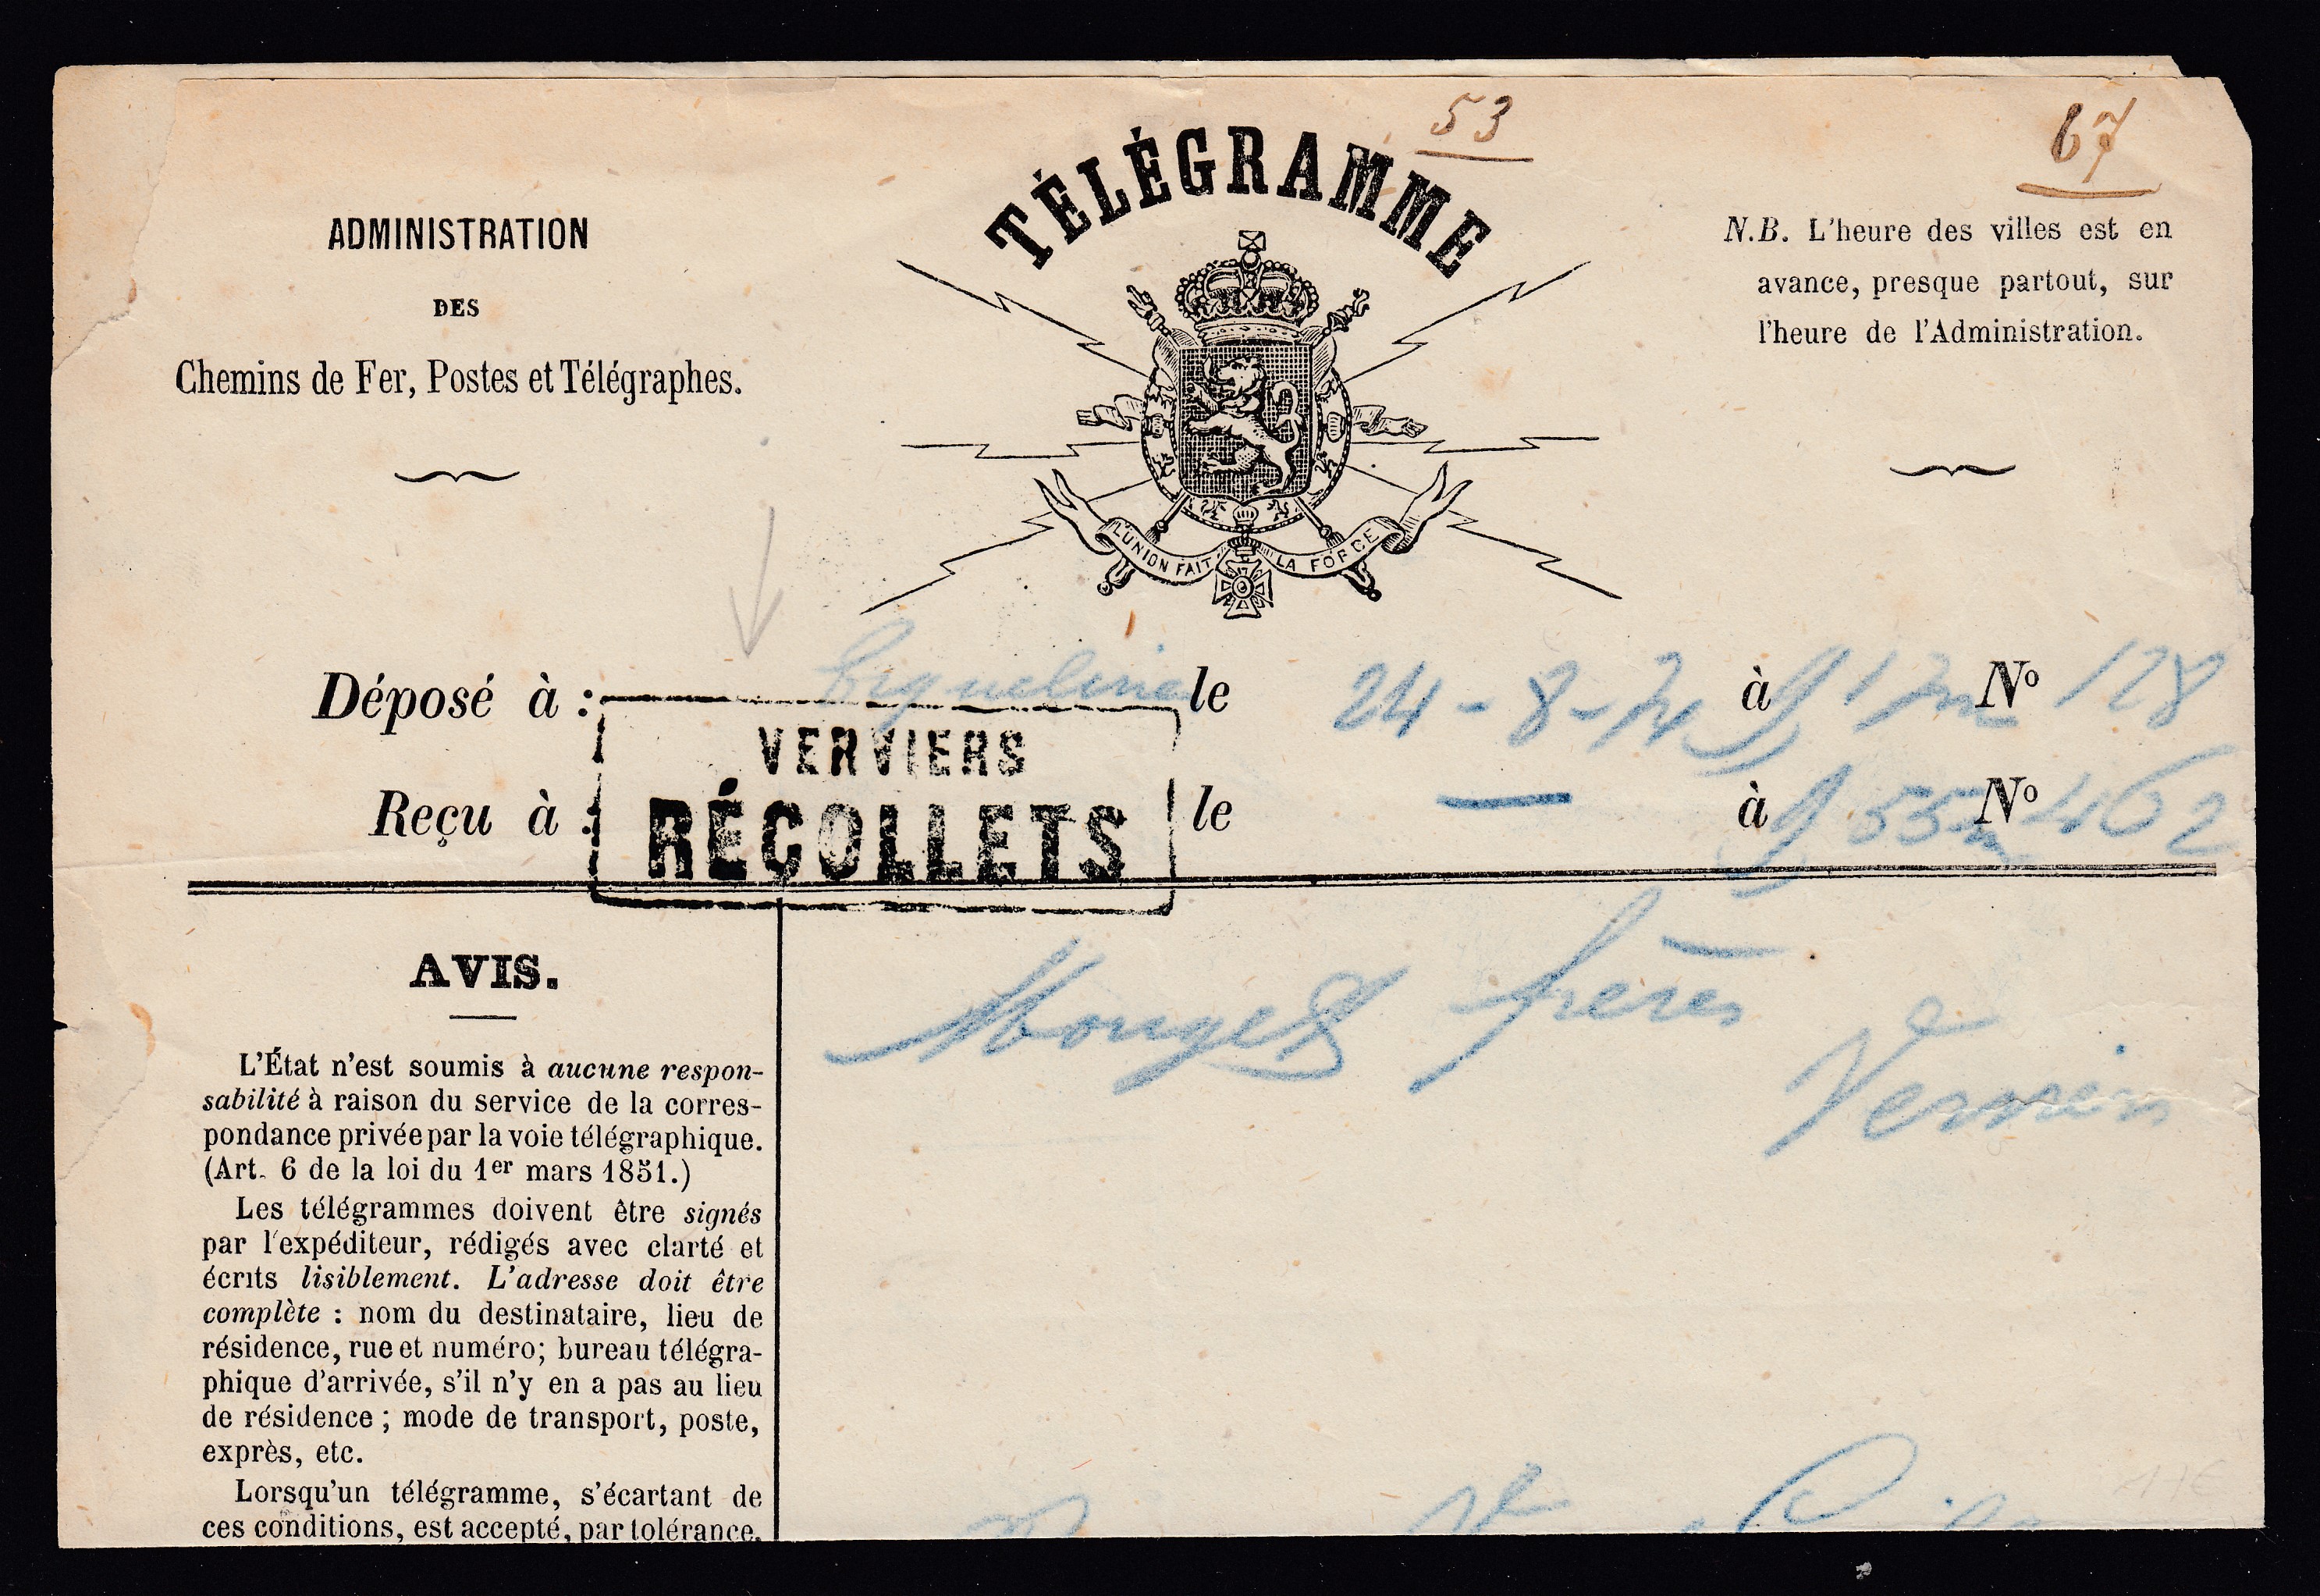 53
67
TÉLÉGRAMME
ADMINISTRATION
DES
Chemins de Fer, Postes et Télégraphes.
N.B. L'heure des villes est en
avance, presque partout, sur
l'heure de l'Administration.
L'UNION FAIT LA FORCE
Déposé à : le 24-8-74 à 9 N° 128
VERVIERS
RÉCOLLETS
Reçu à : le — à 9 55m N° 462
frères
Verviers
AVIS.
L'État n'est soumis à aucune respon-
sabilité à raison du service de la corres-
pondance privée par la voie télégraphique.
(Art. 6 de la loi du 1er mars 1851.)
Les télégrammes doivent être signés
par l'expéditeur, rédigés avec clarté et
écrits lisiblement. L'adresse doit être
complète : nom du destinataire, lieu de
résidence, rue et numéro; bureau télégra-
phique d'arrivée, s'il n'y en a pas au lieu
de résidence ; mode de transport, poste,
exprès, etc.
Lorsqu'un télégramme, s'écartant de
ces conditions, est accepté, par tolérance,